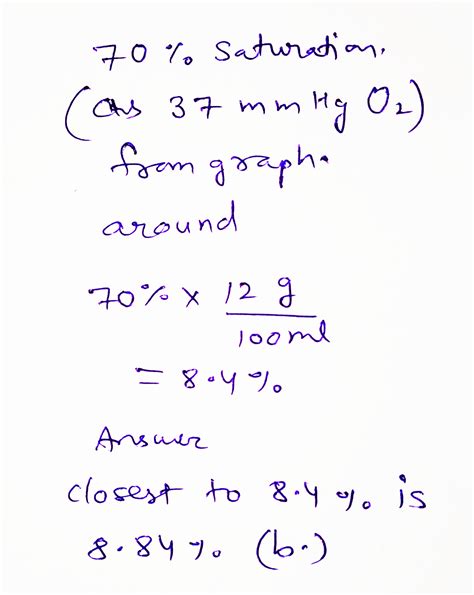 70 % saturation.
(as 37 mmHg O₂)
from graph.
around
70% x 12 g
100ml
= 8.4 %
Answer
closest to 8.4 % is
8.84 %. (b.)